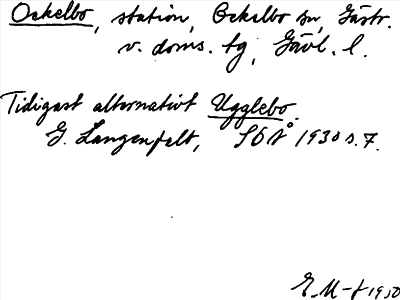 Ockelbo, station, Ockelbo sn, Gästr.
v. doms. tg, Gävl. l.
Tidigast alternativt Ugglebo.
G. Langenfelt, SOÅ 1930 s. 7.
E. M-t 1930